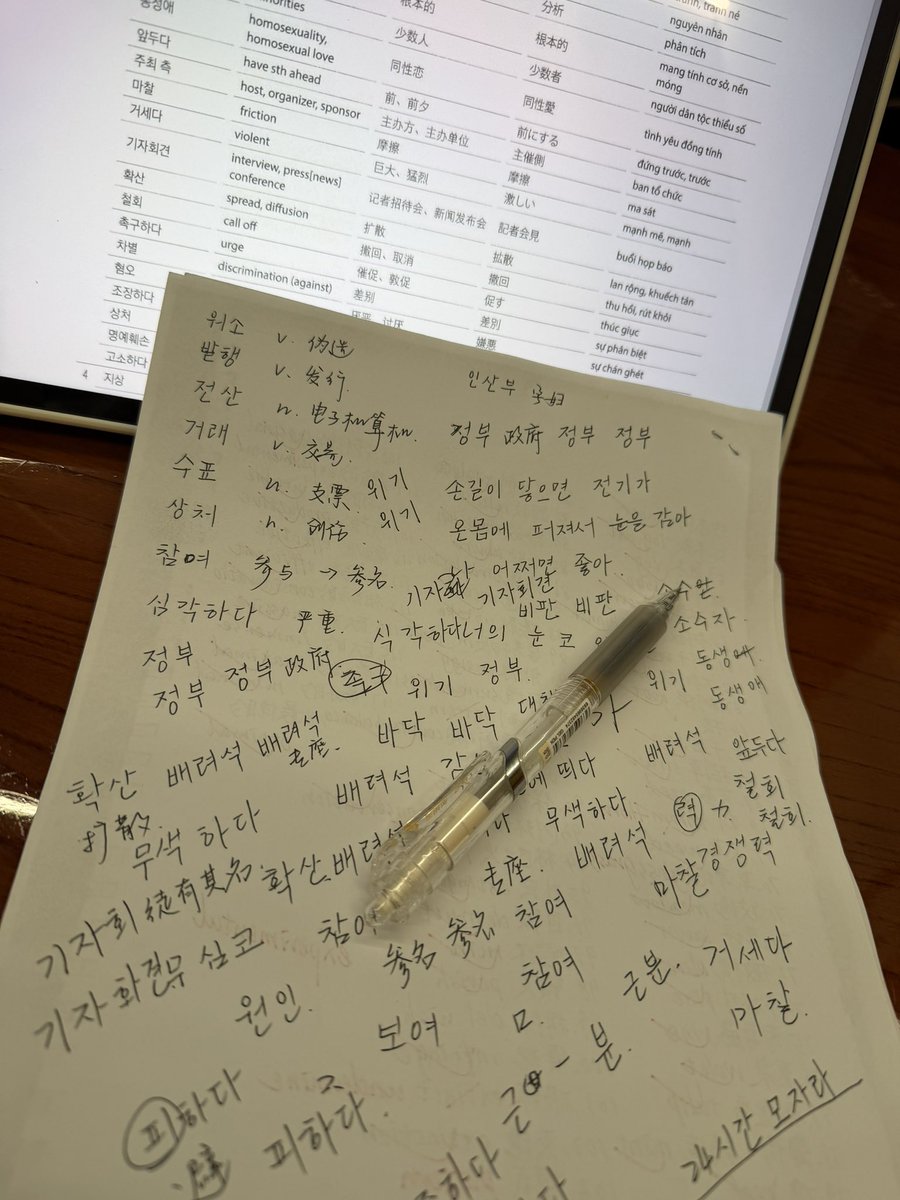 동성애 minorities 根本的 分析 tránh, tránh né
앞두다 homosexuality, homosexual love 少数人 根本的 nguyên nhân
주최 측 have sth ahead 同性恋 少数者 phân tích
마찰 host, organizer, sponsor 前、前夕 同性愛 mang tính cơ sở, nền móng
거세다 friction 主办方、主办单位 前にする người dân tộc thiểu số
기자회견 violent 摩擦 主催側 tình yêu đồng tính
확산 interview, press[news] conference 巨大、猛烈 摩擦 đứng trước, trước
철회 spread, diffusion 记者招待会、新闻发布会 激しい ban tổ chức
촉구하다 call off 扩散 記者会見 ma sát
차별 urge 撤回、取消 拡散 mạnh mẽ, mạnh
혐오 discrimination (against) 催促、敦促 撤回 buổi họp báo
조장하다 差别 促す lan rộng, khuếch tán
상처 讨厌 差別 thu hồi, rút khỏi
명예훼손 嫌悪 thúc giục
고소하다 sự phân biệt
4 지상 sự chán ghét
위소 v. 伪造
발행 v. 发行. 인산부 孕妇
전산 n. 电子和算机. 정부 政府 정부 정부
거래 v. 交易
수표 n. 支票 위기 손길이 닿으면 전기가
상처 n. 创伤 위기 온몸에 퍼져서 눈을 감아
참여 参与 → 参名. 어쩌면 좋아.
기자회견
심각하다 严重. 비판 비판
식각하다 너의 눈 코 소수자.
정부 동생애
정부 정부 政府 위기 정부. 위기 동생애
확산 배려석 배려석 바닥 바닥 배려석 앞두다
扩散 老座. 배려석 에 띄다 철회
무색 하다 무색하다. 력 力 철회.
기자회 徒有其名. 확산 배려석 老座. 배려석. 마찰 경쟁력
기자회견 무심코 참여 参名 参名 참여
원인. 보여 참여 근분. 거세다
ㅁ. 마찰.
피하다 ㅈ 근 분.
避 피하다.
하다 24시간 모자라